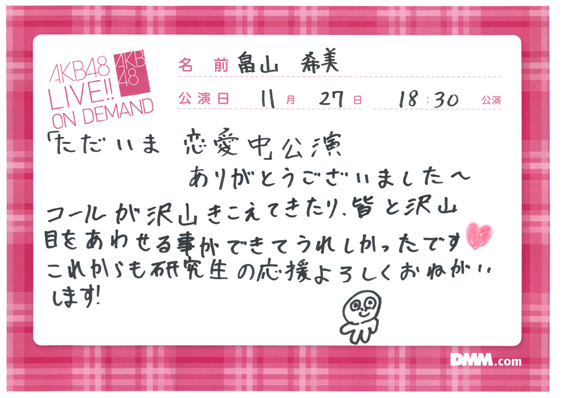 AKB48
LIVE!!
ON DEMAND
AKB
48
名 前 畠山 希美
公演日 11月 27日 18:30 公演
「ただいま 恋愛中」公演
ありがとうございました〜
コールが沢山きこえてきたり、皆と沢山
目をあわせる事ができてうれしかったです
これからも研究生の応援よろしくおねがい
します!
DMM.com